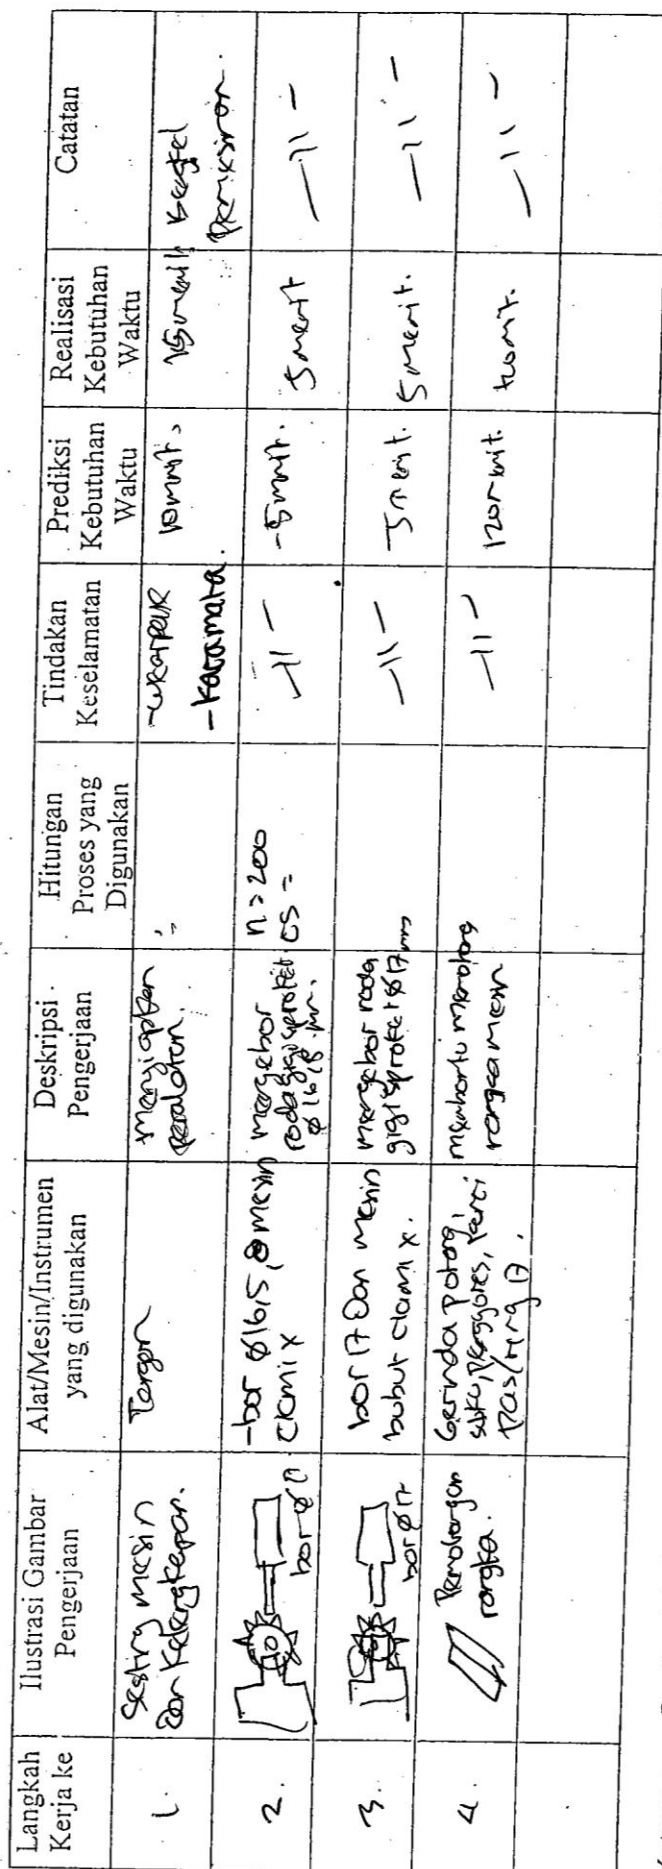 Langkah
Kerja ke
Ilustrasi Gambar
Pengerjaan
Alat/Mesin/Instrumen
yang digunakan
Deskripsi
Pengerjaan
Hitungan
Proses yang
Digunakan
Tindakan
Keselamatan
Prediksi
Kebutuhan
Waktu
Realisasi
Kebutuhan
Waktu
Catatan
1.
Setting mesin
dan kelengkapan.
Tangan
menyiapkan
peralatan.
- wearpack
- kacamata.
10 menit.
15 menit
bengkel
permesinan.
2.
bor Ø17
- bor Ø16,5, mesin
ciamix
mengebor
roda gigi sproket
Ø16,5 mm.
n = 200
CS =
-11-
- 5 menit.
5 menit
-11-
3.
bor Ø17
bor 17 dan mesin
bubut ciamix.
mengebor roda
gigi sproket Ø17 mm
-11-
5 menit.
5 menit.
-11-
4.
Pemotongan
rangka.
Gerinda potong,
siku, penggores, kunci
pas/ring 17.
membantu memotong
rangka mesin
-11-
120 menit.
-11-